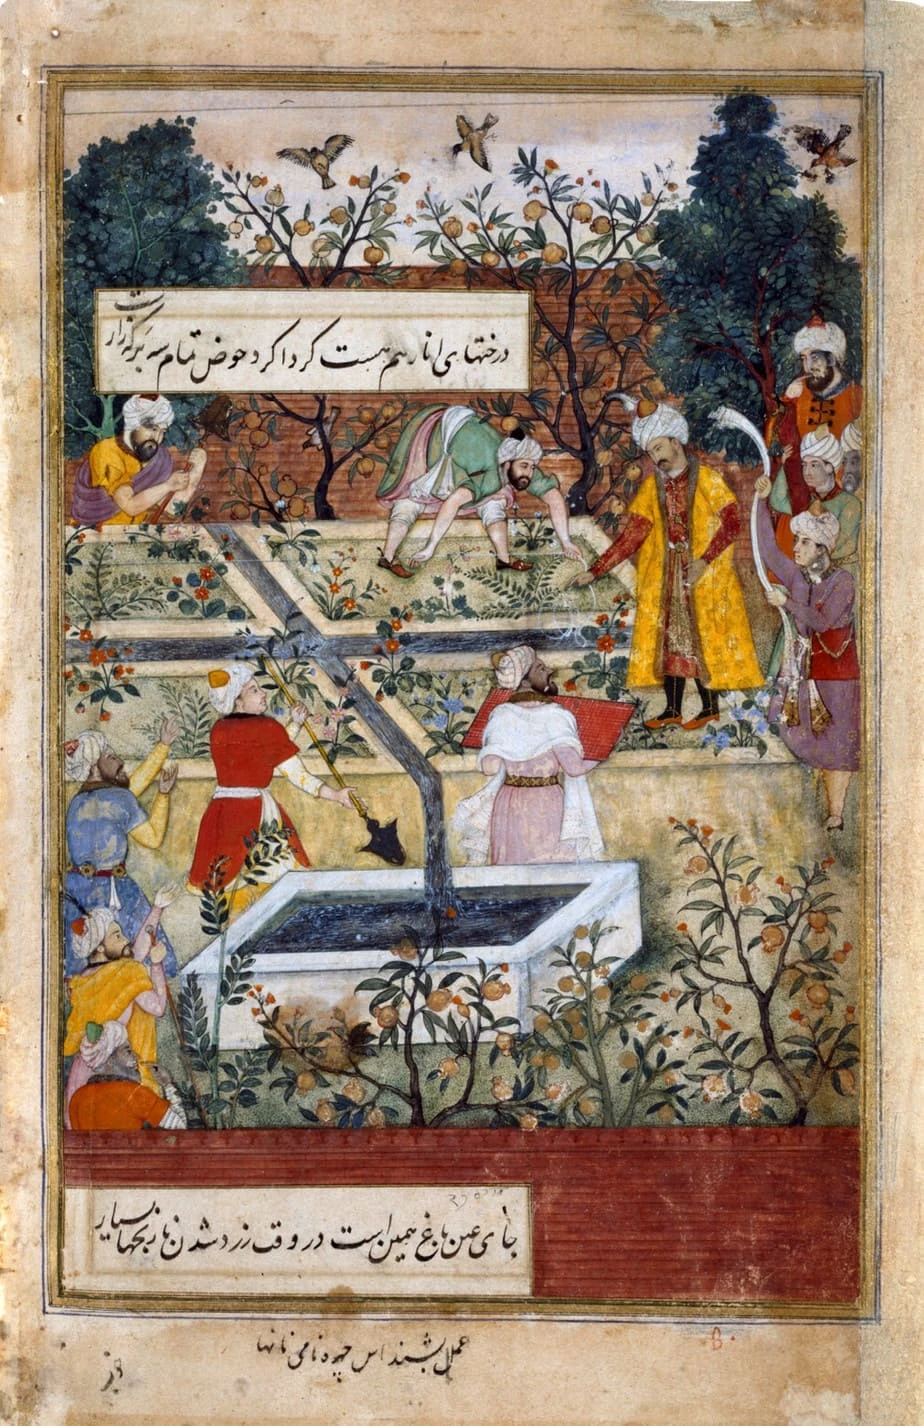 درختهای انار هم هست گرداگرد حوض تمام سه برگه‌زار است
جای عین باغ همین است در وقت زرد شدن نارنجها بسیار
عمل بشنداس چهره نامی نانها